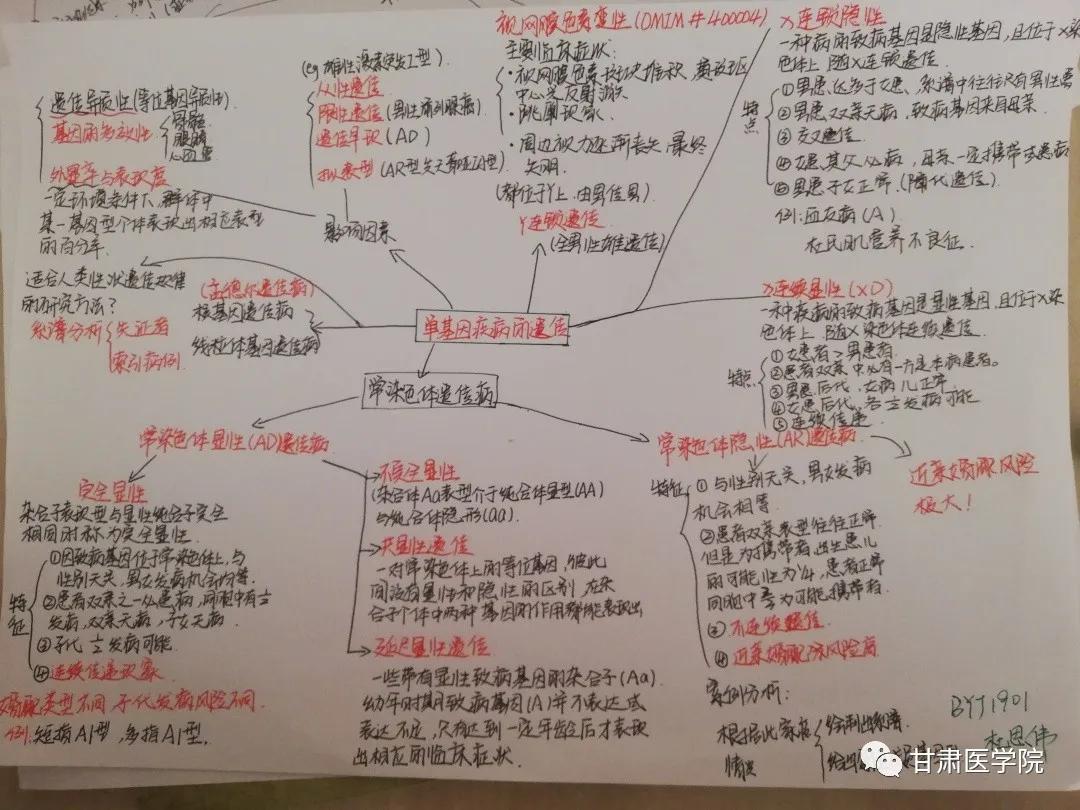 视网膜色素变性(OMIM #400004)
主要临床症状:
中心光反射消失
·跳阑现象.
·周边视力逐渐丧失,最终
失明.
(都位于Y上.由男传男)
Y连锁遗传
(全男性雄遗传)
X连锁隐性
一种病的致病基因是隐性基因,且位于X染
色体上,随X连锁遗传.
特点
①男患远多于女患、系谱中往往只有男性患
②男患双亲无病,致病基因来自母亲.
③交叉遗传
④女患其父必病,母亲一定携带或患病
⑤男患子女正常.(隔代遗传)
例:血友病(A)
杜氏肌营养不良症.
(eg 雄性激素突出I型).
从性遗传
限性遗传(男性前列腺癌)
遗传早现(AD)
拟表型
影响因素
遗传异质性(等位基因异质性)
基因的多效性
骨骼
眼睛
心血管
外显率与表现度
一定环境条件下,群体中
某一基因型个体表现出相应表型
的百分率.
适合人类性状遗传规律
的研究方法?
系谱分析
先证者
索引病例.
(孟德尔遗传病)
核基因遗传病
线粒体基因遗传病
单基因疾病的遗传
常染色体遗传病
X连锁显性(XD)
一种疾病的致病基因是显性基因,且位于X染
色体上.随X染色体连锁遗传.
特点
①女患者>男患者.
②患者双亲中必有一方是本病患者。
③男患后代,女病儿正常
④女患后代,各½发病可能
⑤连续传递.
常染色体显性(AD)遗传病.
完全显性
杂合子表现型与显性纯合子完全
相同时称为完全显性.
特征
①因致病基因位于常染色体上,与
性别无关,男女发病机会均等.
②患者双亲之一必患病,同胞中有½
发病,双亲无病,子女无病.
③子代½发病可能.
④连续传递现象.
婚配类型不同 子代发病风险不同.
例:短指A1型,多指A1型.
不完全显性
(杂合体Aa表型介于纯合体显型(AA)
与纯合体隐形(aa).
共显性遗传
一对常染色体上的等位基因,彼此
间没有显性和隐性的区别,在杂
合子个体中两种基因的作用都能表现出
延迟显性遗传
一些带有显性致病基因的杂合子(Aa).
幼年时期致病基因(A)并不表达或
表达不足,只有达到一定年龄后才表现
出相应的临床症状.
常染色体隐性(AR)遗传病.
近亲婚配风险
极大!
特征
①与性别无关,男女发病
机会相等.
②患者双亲表型往往正常.
但是为携带者,出生患儿
的可能性为¼,患者正常
同胞中⅔为可能携带者.
③不连续遗传.
④近亲婚配风险高
案例分析:
根据此家系
情况
绘制出系谱
BYJ1901
杜恩伟
甘肃医学院